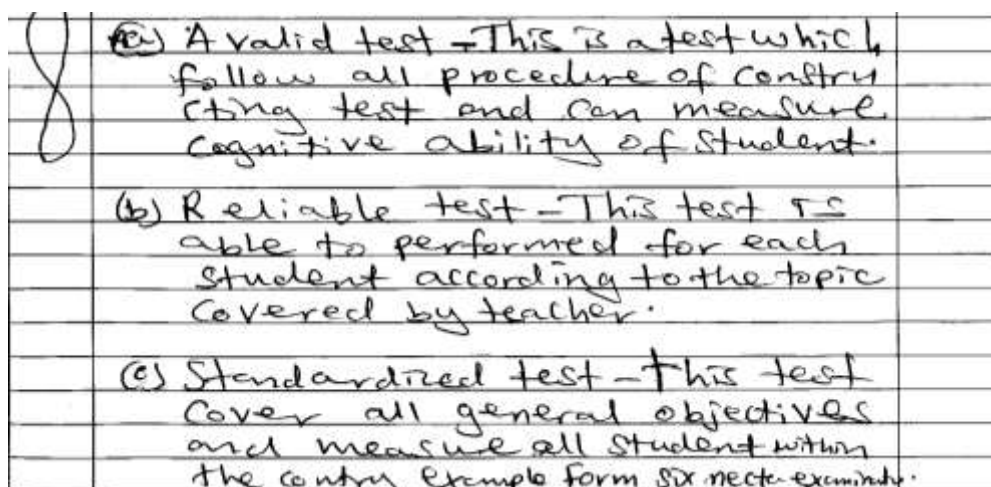 8
(a) A valid test - This is a test which
follow all procedure of constru
cting test and can measure
cognitive ability of student.
(b) Reliable test - This test is
able to performed for each
student according to the topic
covered by teacher.
(c) Standardized test - This test
cover all general objectives
and measure all student within
the contry example form six necta